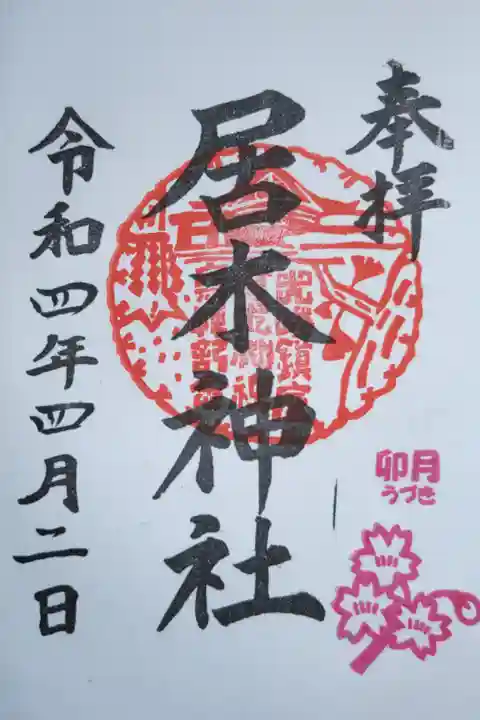 奉拝
卯月
うづき
居木神社
令和四年四月二日